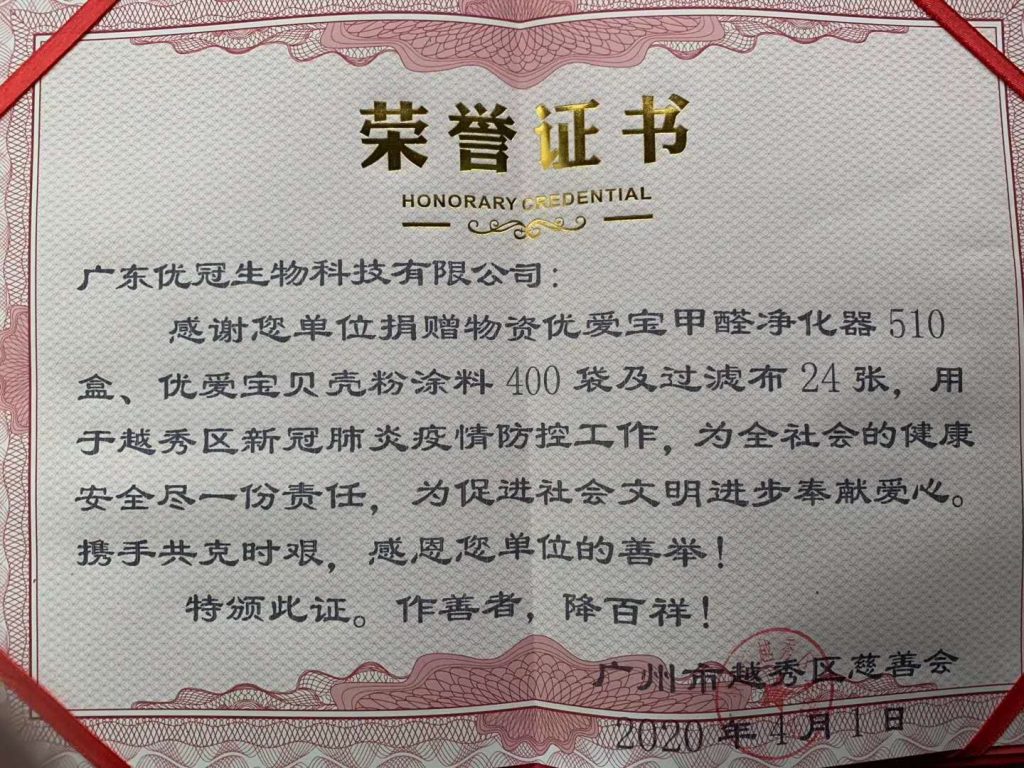 荣誉证书
HONORARY CREDENTIAL
广东优冠生物科技有限公司：
感谢您单位捐赠物资优爱宝甲醛净化器510
盒、优爱宝贝壳粉涂料400袋及过滤布24张，用
于越秀区新冠肺炎疫情防控工作，为全社会的健康
安全尽一份责任，为促进社会文明进步奉献爱心。
携手共克时艰，感恩您单位的善举！
特颁此证。作善者，降百祥！
广州市越秀区慈善会
2020年4月1日